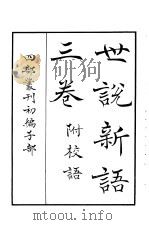 世說新語
三卷
附校語
四部叢刊初編子部
mtoou.info